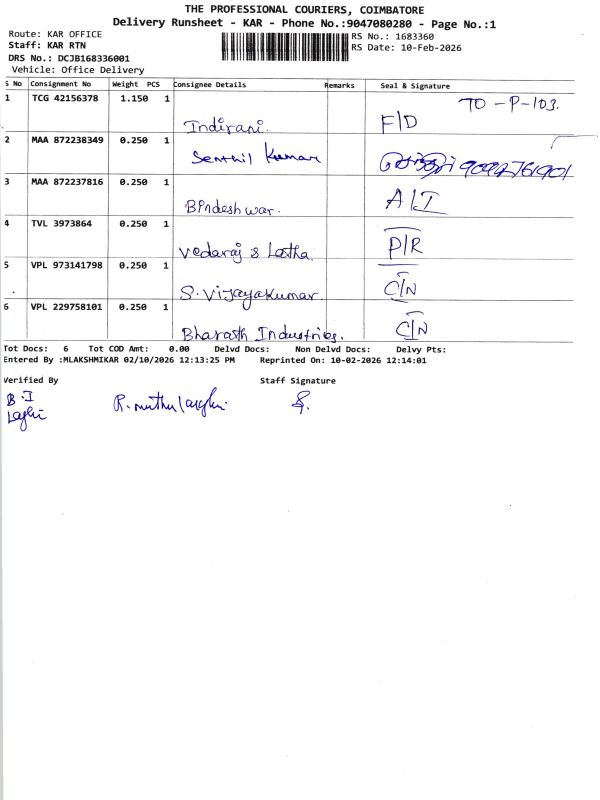 THE PROFESSIONAL COURIERS, COIMBATORE
Delivery Runsheet - KAR - Phone No.:9047080280 - Page No.:1
Route: KAR OFFICE
RS No.: 1683360
Staff: KAR RTN
RS Date: 10-Feb-2026
DRS No.: DCJB168336001
Vehicle: Office Delivery
S No Consignment No Weight PCS Consignee Details Remarks Seal & Signature
1 TCG 42156378 1.150 1 Indirani. F/D TO-P-103.
2 MAA 872238349 0.250 1 Senthil Kumar
3 MAA 872237816 0.250 1 A/I
4 TVL 3973864 0.250 1 Vedaraj & Latha. P/R
5 VPL 973141798 0.250 1 S. Vijayakumar C/N
6 VPL 229758101 0.250 1 Bharath Industries. C/N
Tot Docs: 6 Tot COD Amt: 0.00 Delvd Docs: Non Delvd Docs: Delvy Pts:
Entered By :MLAKSHMIKAR 02/10/2026 12:13:25 PM Reprinted On: 10-02-2026 12:14:01
Verified By Staff Signature